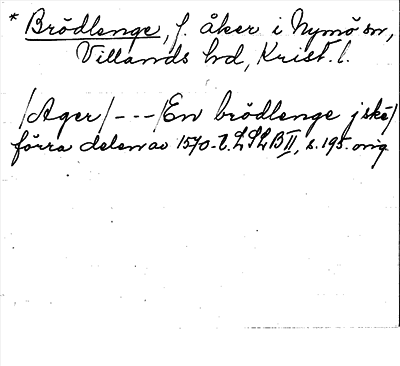 * Brödlenge, f. åker i Nymö sn,
Villands hd, Krist. l.
/Ager/ --- /En brödlenge j ské/
förra delen av 1570-t. LSLB II, s. 195. orig